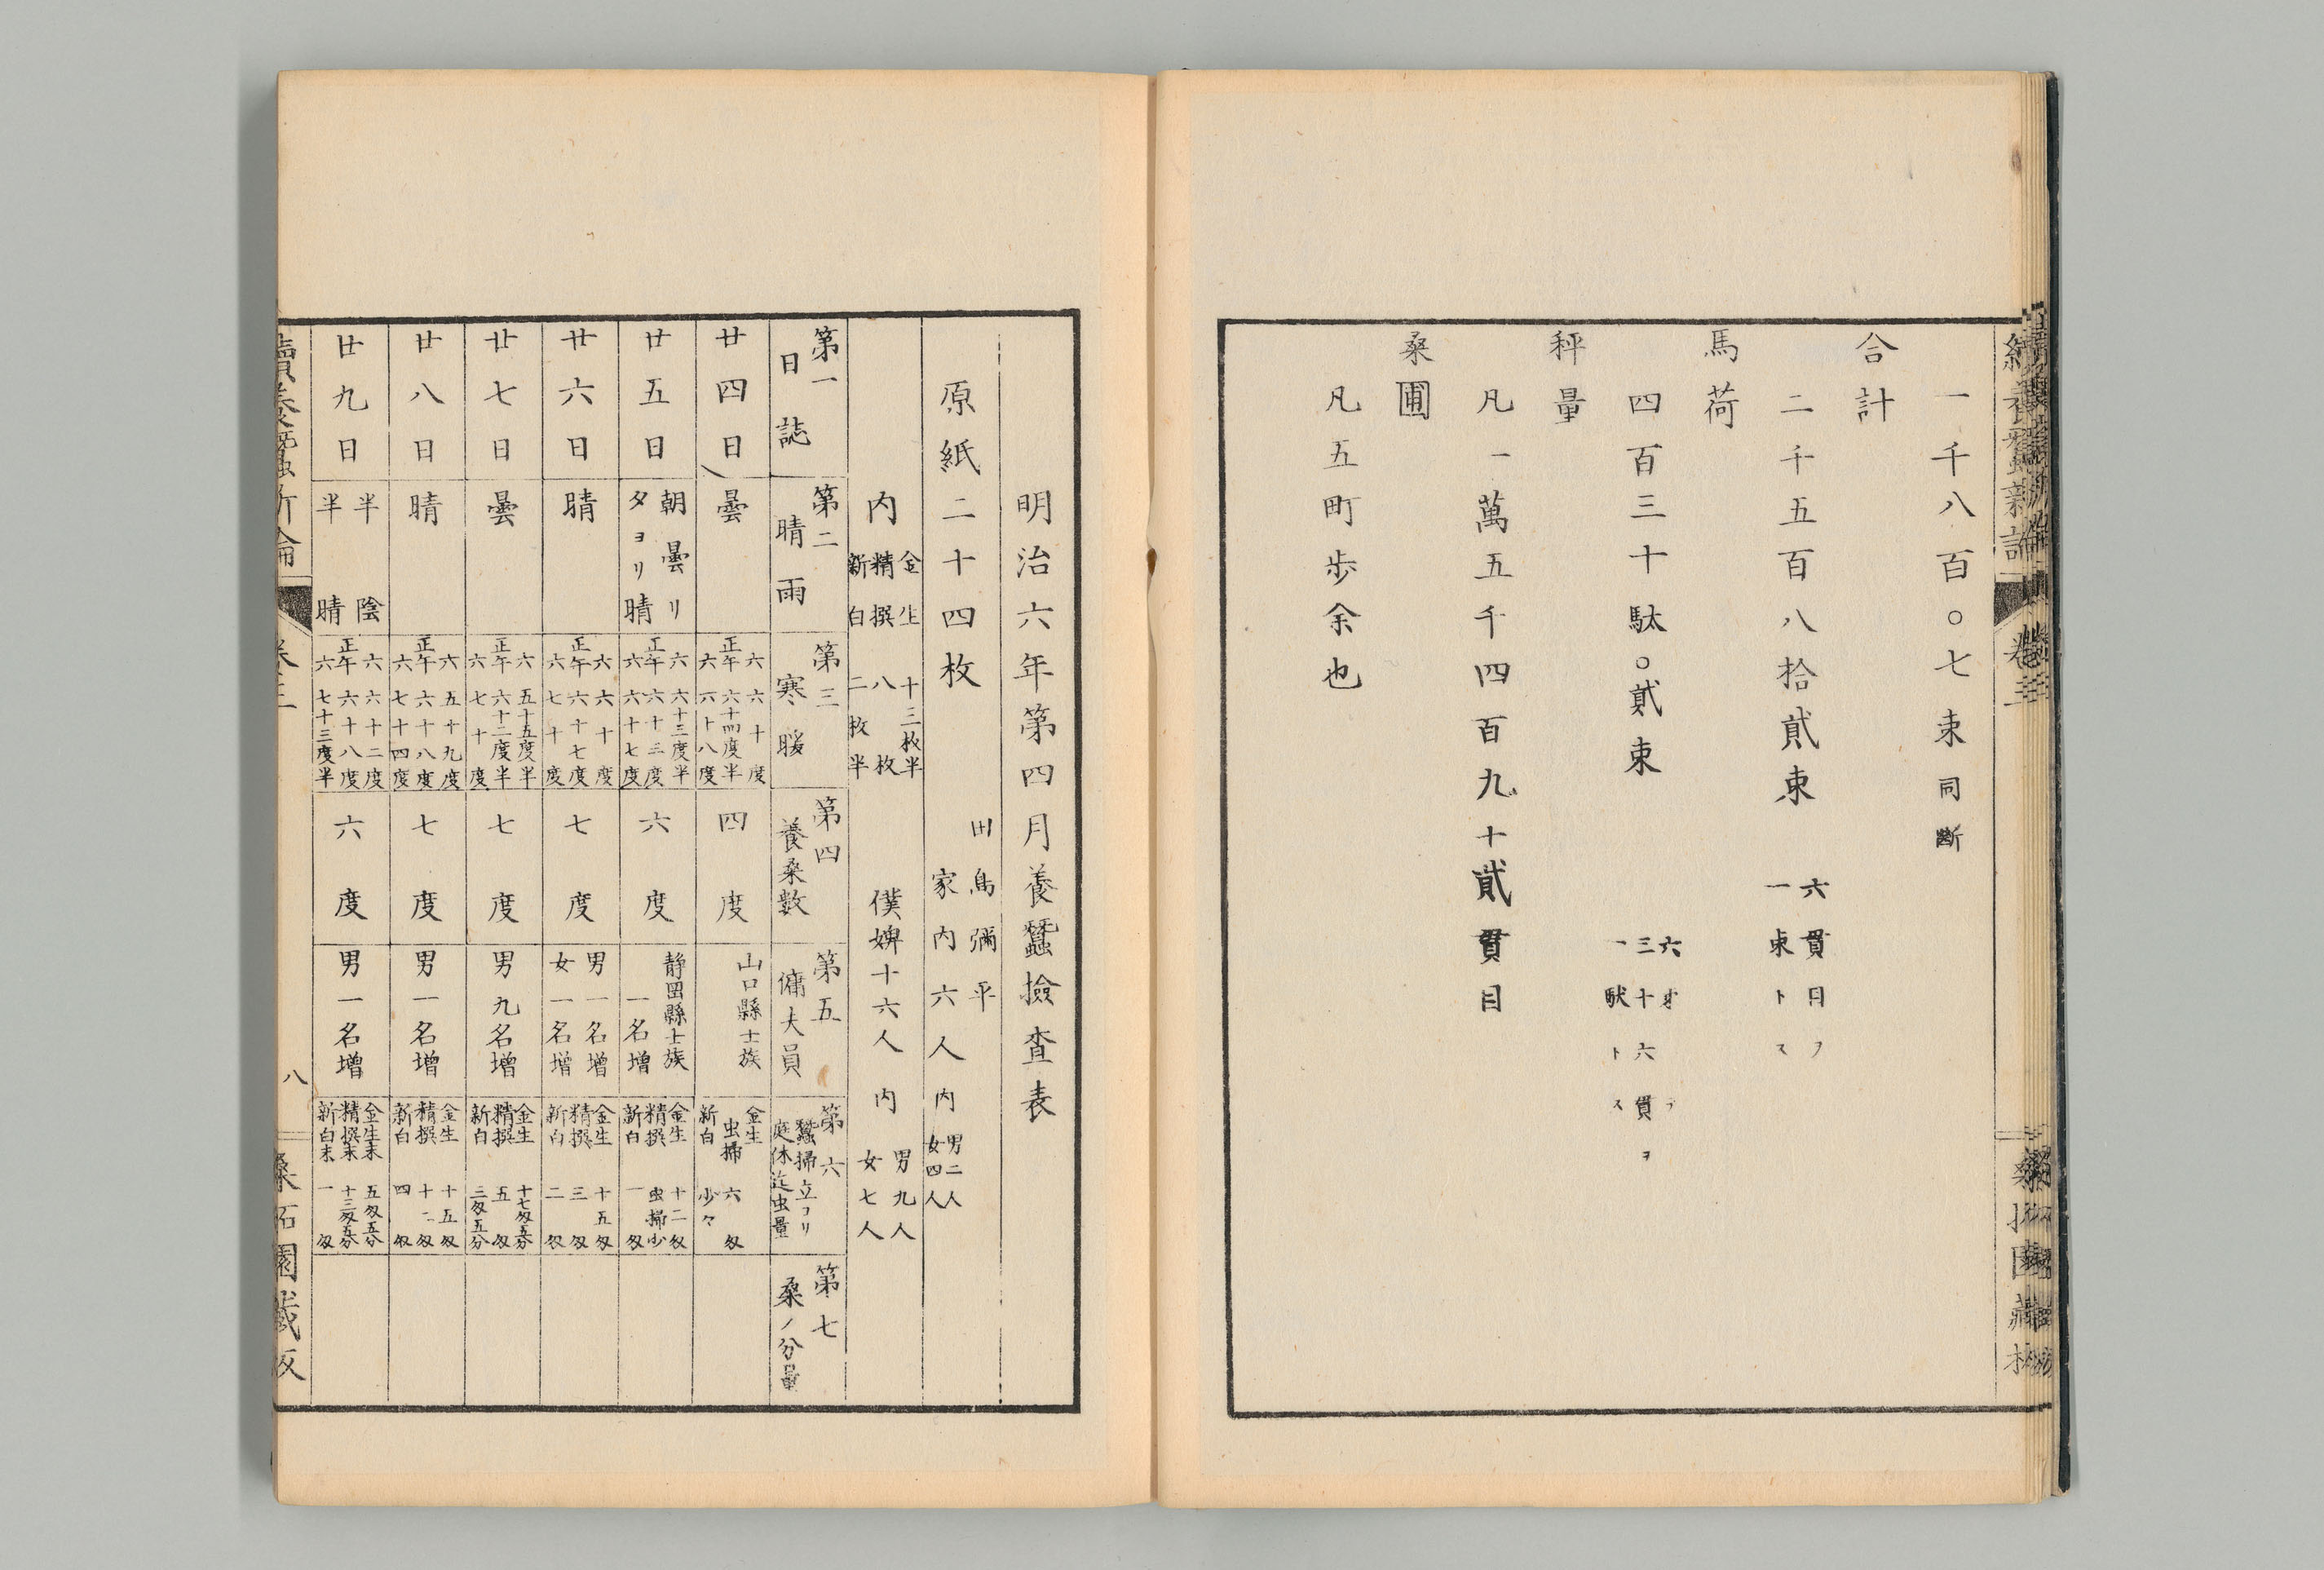 一千八百〇七束同断
合計
二千五百八拾貳束 六貫目ヲ
一束トス
馬荷
四百三十駄〇貳束
三十六貫
一駄トス
秤量
凡一萬五千四百九十貳貫目
桑圃
凡五町歩余也
明治六年第四月養蠶撿査表
田島彌平
原紙二十四枚 家内六人 内 男二人
女四人
内 金生 十三枚半
精撰 八枚
新白 二枚半
僕婢十六人 内 男九人
女七人
第一 日誌
第二 晴雨
第三 寒暖
第四 養桑數
第五 傭夫員
第六 蠶掃立ヨリ
庭休迠虫量
第七 桑ノ分量
廿四日
曇
六 六十度
正午 六十四度半
六 六十八度
四度
山口縣士族
金生 六匁
虫掃
新白 少々
廿五日
朝曇リ
夕ヨリ晴
六 六十三度半
正午 六十三度
六 六十七度
六度
静岡縣士族
一名増
金生 十二匁
精撰 虫掃少
新白 一匁
廿六日
晴
六 六十度
正午 六十七度
六 七十度
七度
男一名増
女一名増
金生 十五匁
精撰 三匁
新白 二匁
廿七日
曇
六 五十五度半
正午 六十二度半
六 七十度
七度
男九名増
金生 十七匁五分
精撰 五匁
新白 三匁五分
廿八日
晴
六 五十九度
正午 六十八度
六 七十四度
七度
男一名増
金生 十五匁
精撰 十二匁
新白 四匁
廿九日
半陰
半晴
六 六十二度
正午 六十八度
六 七十三度半
六度
男一名増
金生末 五匁五分
精撰末 十三匁五分
新白末 一匁
八